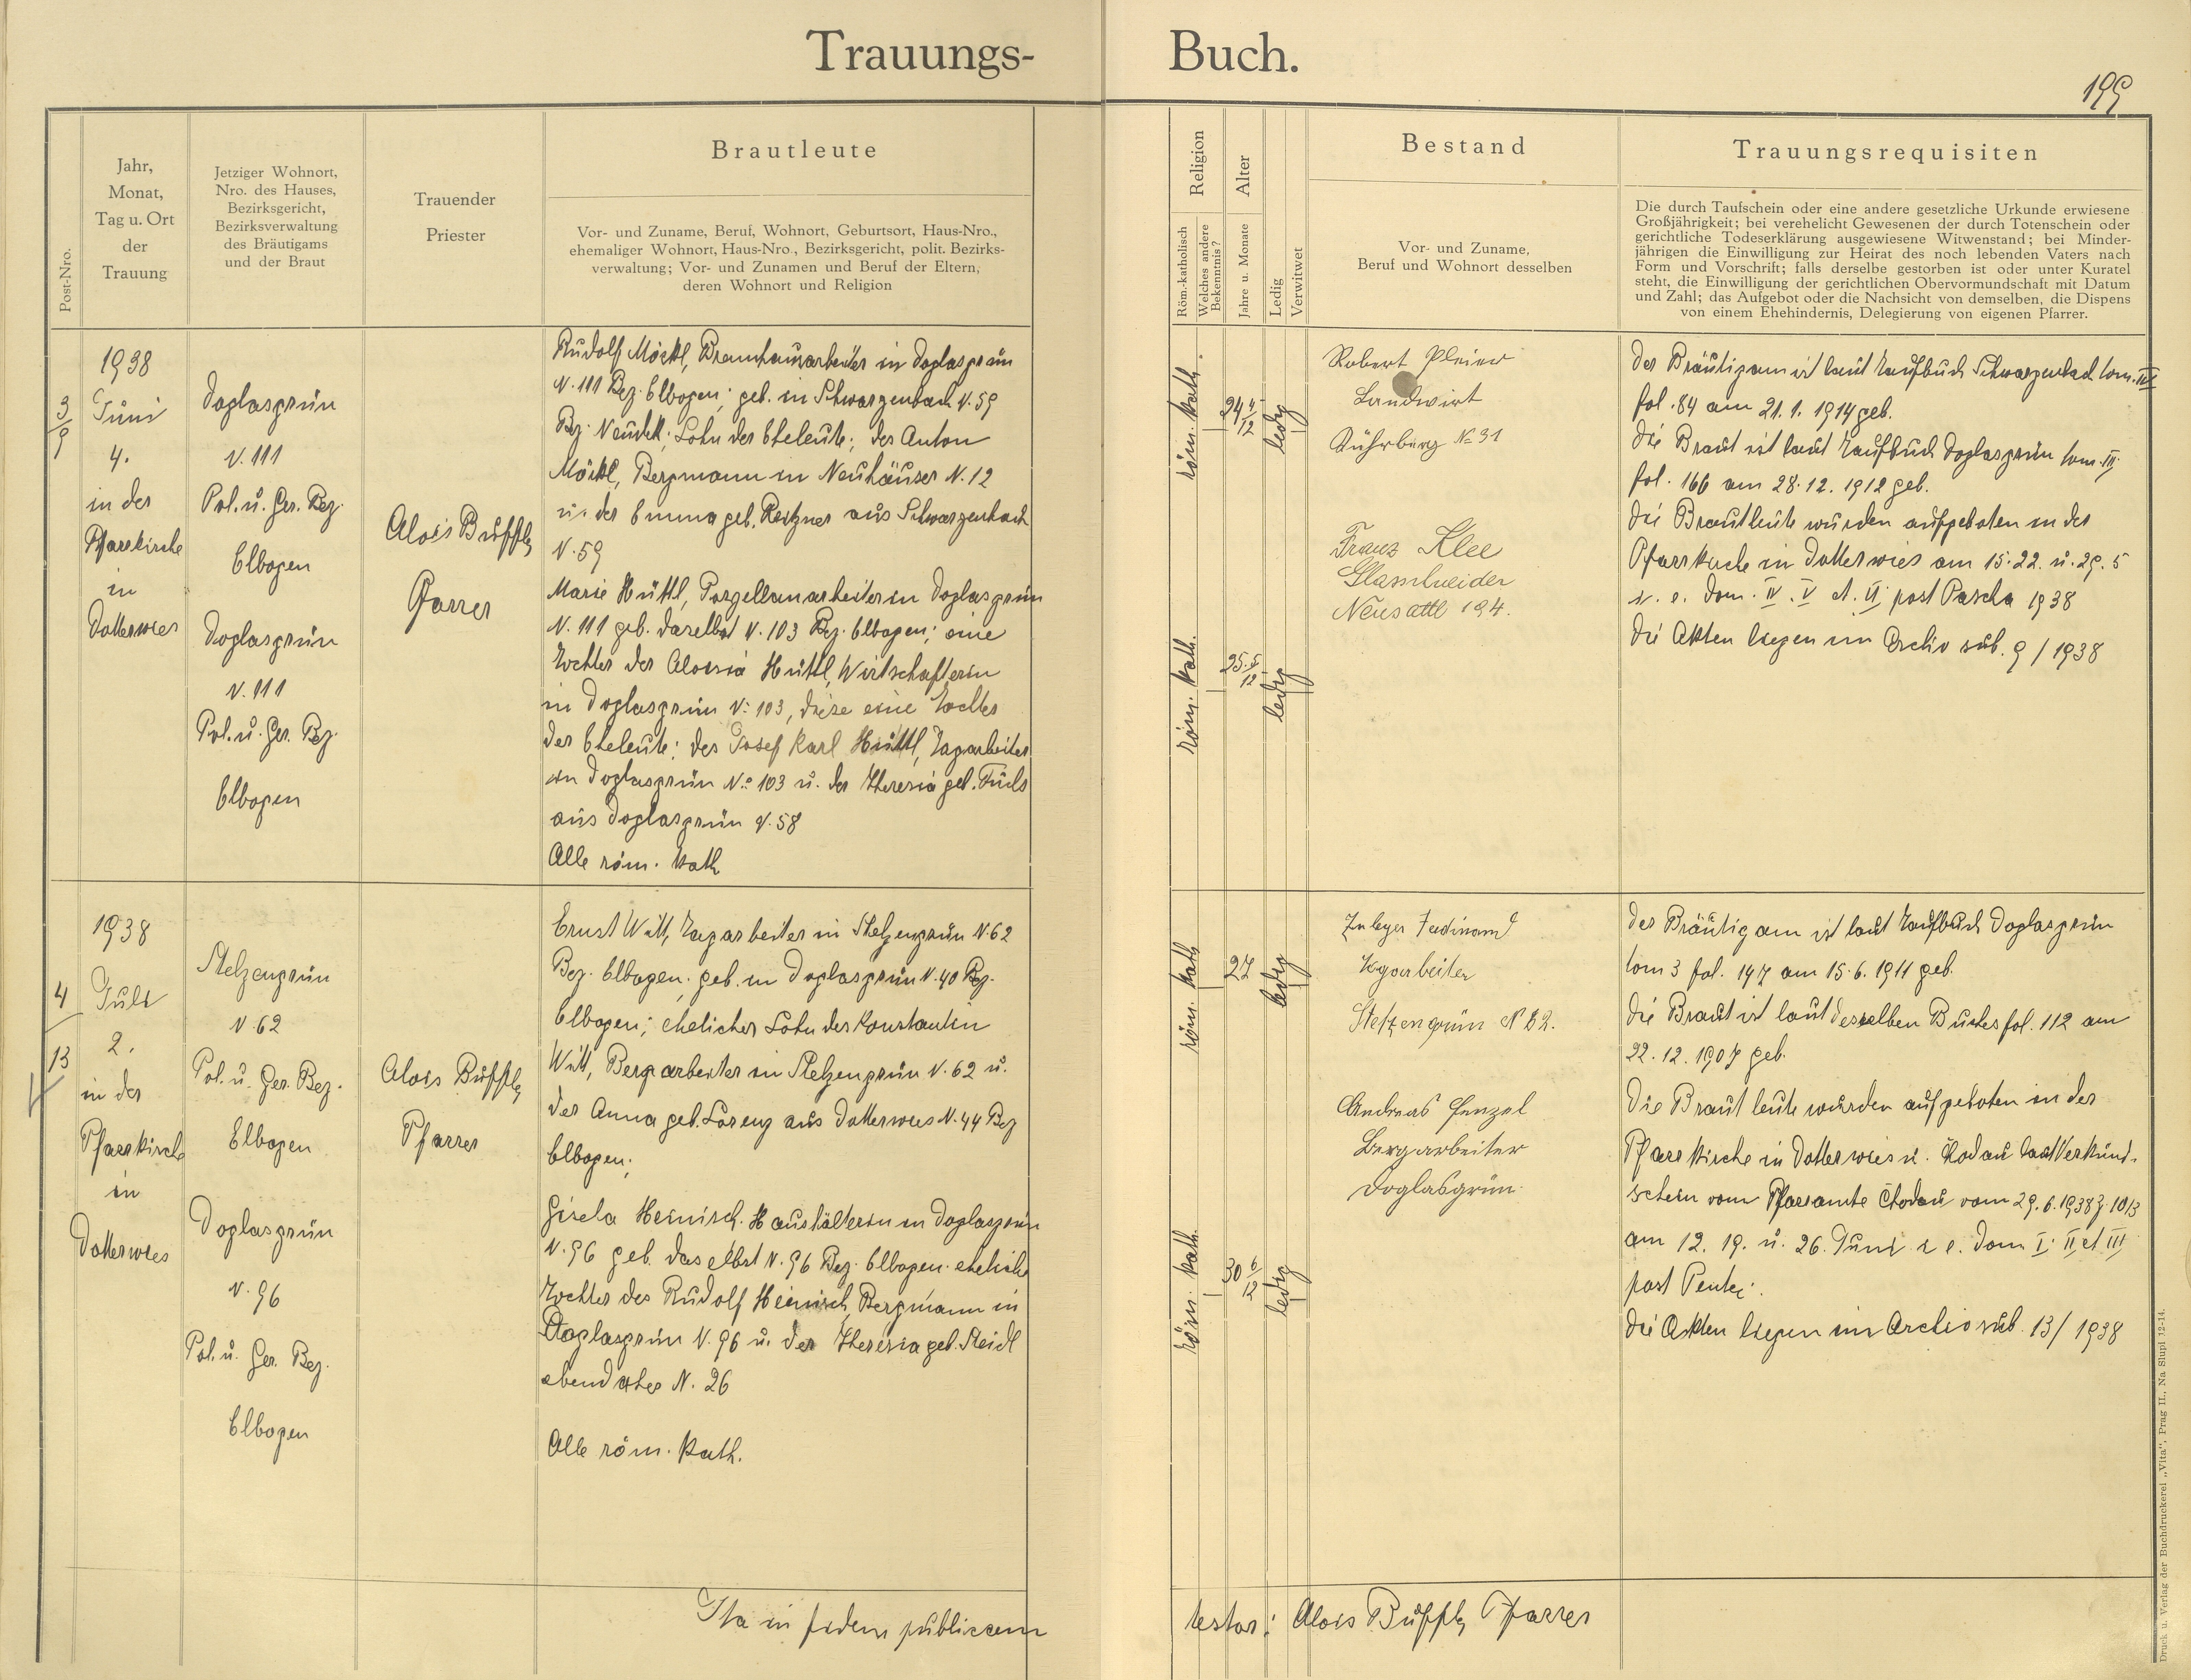 Trauungs-
Buch.
199
Post-Nro.
Jahr,
Monat,
Tag u. Ort
der
Trauung
Jetziger Wohnort,
Nro. des Hauses,
Bezirksgericht,
Bezirksverwaltung
des Bräutigams
und der Braut
Trauender
Priester
Brautleute
Vor- und Zuname, Beruf, Wohnort, Geburtsort, Haus-Nro.,
ehemaliger Wohnort, Haus-Nro., Bezirksgericht, polit. Bezirks-
verwaltung; Vor- und Zunamen und Beruf der Eltern,
deren Wohnort und Religion
Religion
Röm.-katholisch
Welches andere
Bekenntnis?
Alter
Jahre u. Monate
Ledig
Verwitwet
Bestand
Vor- und Zuname,
Beruf und Wohnort desselben
Trauungsrequisiten
Die durch Taufschein oder eine andere gesetzliche Urkunde erwiesene
Großjährigkeit; bei verehelicht Gewesenen der durch Totenschein oder
gerichtliche Todeserklärung ausgewiesene Witwenstand; bei Minder-
jährigen die Einwilligung zur Heirat des noch lebenden Vaters nach
Form und Vorschrift; falls derselbe gestorben ist oder unter Kuratel
steht, die Einwilligung der gerichtlichen Obervormundschaft mit Datum
und Zahl; das Aufgebot oder die Nachsicht von demselben, die Dispens
von einem Ehehindernis, Delegierung von eigenen Pfarrer.
3/9
1938
Juni
4.
in der
Pfarrkirche
in
Dotterwies
Doglasgrün
N. 111
Pol. u. Ger. Bez.
Elbogen
Doglasgrün
N. 111
Pol. u. Ger. Bez.
Elbogen
Alois
Pfarrer
Rudolf Möckl, Brennhausarbeiter in Doglasgrün
N. 111 Bez. Elbogen; geb. in Schwarzenbach N. 59
Bez. Neudek; Sohn der Eheleute; des Anton
Möckl, Bergmann in Neuhäuser N. 12
u. der Emma geb. Reitzner aus Schwarzenbach
N. 59
Marie Hüttl, Porzellanarbeiterin Doglasgrün
N. 111 geb. daselbst N. 103 Bez. Elbogen; eine
Tochter der Aloisia Hüttl, Wirtschafterin
in Doglasgrün N: 103, diese eine Tochter
der Eheleute: des Josef Karl Hüttl, Tagarbeiter
in Doglasgrün No 103 u. der Theresia geb. Fuchs
aus Doglasgrün N. 58
Alle röm. kath
röm. kath.
24 4/12
ledig
röm. kath.
25 5/12
ledig
Robert Pleier
Landwirt
No 31
Franz Klee
Neusattl 194.
Der Bräutigam ist laut Taufbuch Schwarzenbach tom. III
fol. 84 am 21. 1. 1914 geb.
Die Braut ist laut Taufbuch Doglasgrün tom. III
fol. 166 am 28. 12. 1912 geb.
Die Brautleute wurden aufgeboten in der
Pfarrkirche in Dotterwies am 15. 22. u. 29. 5
i. e. Dom. IV. V et VI post Pascha 1938
Die Akten liegen im Archiv sub. 9 / 1938
4/13
1938
Juli
2.
in der
Pfarrkirche
in
Dotterwies
Stelzengrün
N. 62
Pol. u. Ger. Bez.
Elbogen
Doglasgrün
N. 96
Pol. u. Ger. Bez.
Elbogen
Alois
Pfarrer
Ernst Witt, Tagarbeiter in Stelzengrün N. 62
Bez. Elbogen; geb. in Doglasgrün N. 40 Bez.
Elbogen; ehelicher Sohn des Konstantin
Witt, Bergarbeiter in Stelzengrün N. 62 u.
der Anna geb. Lorenz aus Dotterwies N. 44 Bez
Elbogen;
Gisela Heinisch, Haushälterin in Doglasgrün
N. 96 geb. daselbst N. 96 Bez. Elbogen. eheliche
Tochter des Rudolf Heinisch, Bergmann in
Doglasgrün N. 96 u. der Theresia geb. Steidl
ebendaher N. 26
Alle röm. kath.
röm. kath
27
ledig
röm. kath.
30 6/12
ledig
Zuleger Ferdinand
Stelzengrün
Andreas Penzel
Bergarbeiter
Doglasgrün.
Der Bräutigam ist laut Taufbuch Doglasgrün
tom 3 fol. 147 am 15. 6. 1911 geb.
Die Braut ist laut desselben Buches fol. 112 am
22. 12. 1907 geb.
Die Brautleute wurden aufgeboten in der
Pfarrkirche in Dotterwies u. Chodau laut Verkünd-
schein vom Pfarramte Chodau vom 29. 6. 1938 Z. 1013
am 12. 19. u. 26. Juni i. e. Dom I. II et III
post Pente.
Die Akten liegen im Archiv sub. 13/ 1938
Ita in fidem publicam
testor: Alois Pfarrer
Druck u. Verlag der Buchdruckerei „Vita“, Prag II., Na Slupi 12-14.